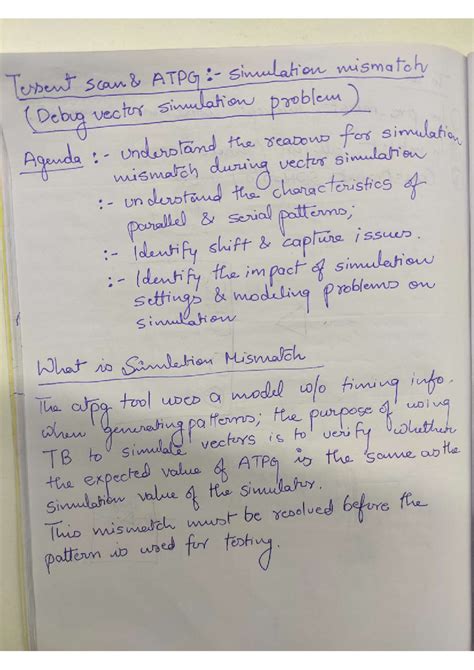 Tessent scan & ATPG :- simulation mismatch
(Debug vector simulation problem)
Agenda :- understand the reasons for simulation
mismatch during vector simulation
:- understand the characteristics of
parallel & serial patterns;
:- Identify shift & capture issues.
:- Identify the impact of simulation
settings & modeling problems on
simulation
What is Simulation Mismatch
The atpg tool uses a model w/o timing info.
when generating patterns; the purpose of using
TB to simulate vectors is to verify whether
the expected value of ATPG is the same as the
simulation value of the simulator.
This mismatch must be resolved before the
pattern is used for testing.